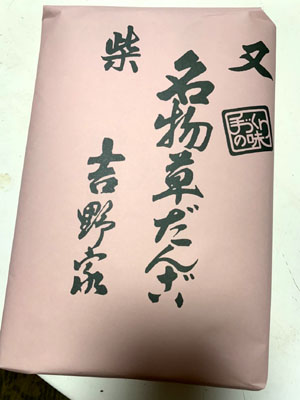 又
手づくりの味
名物草だんご
柴
吉野家